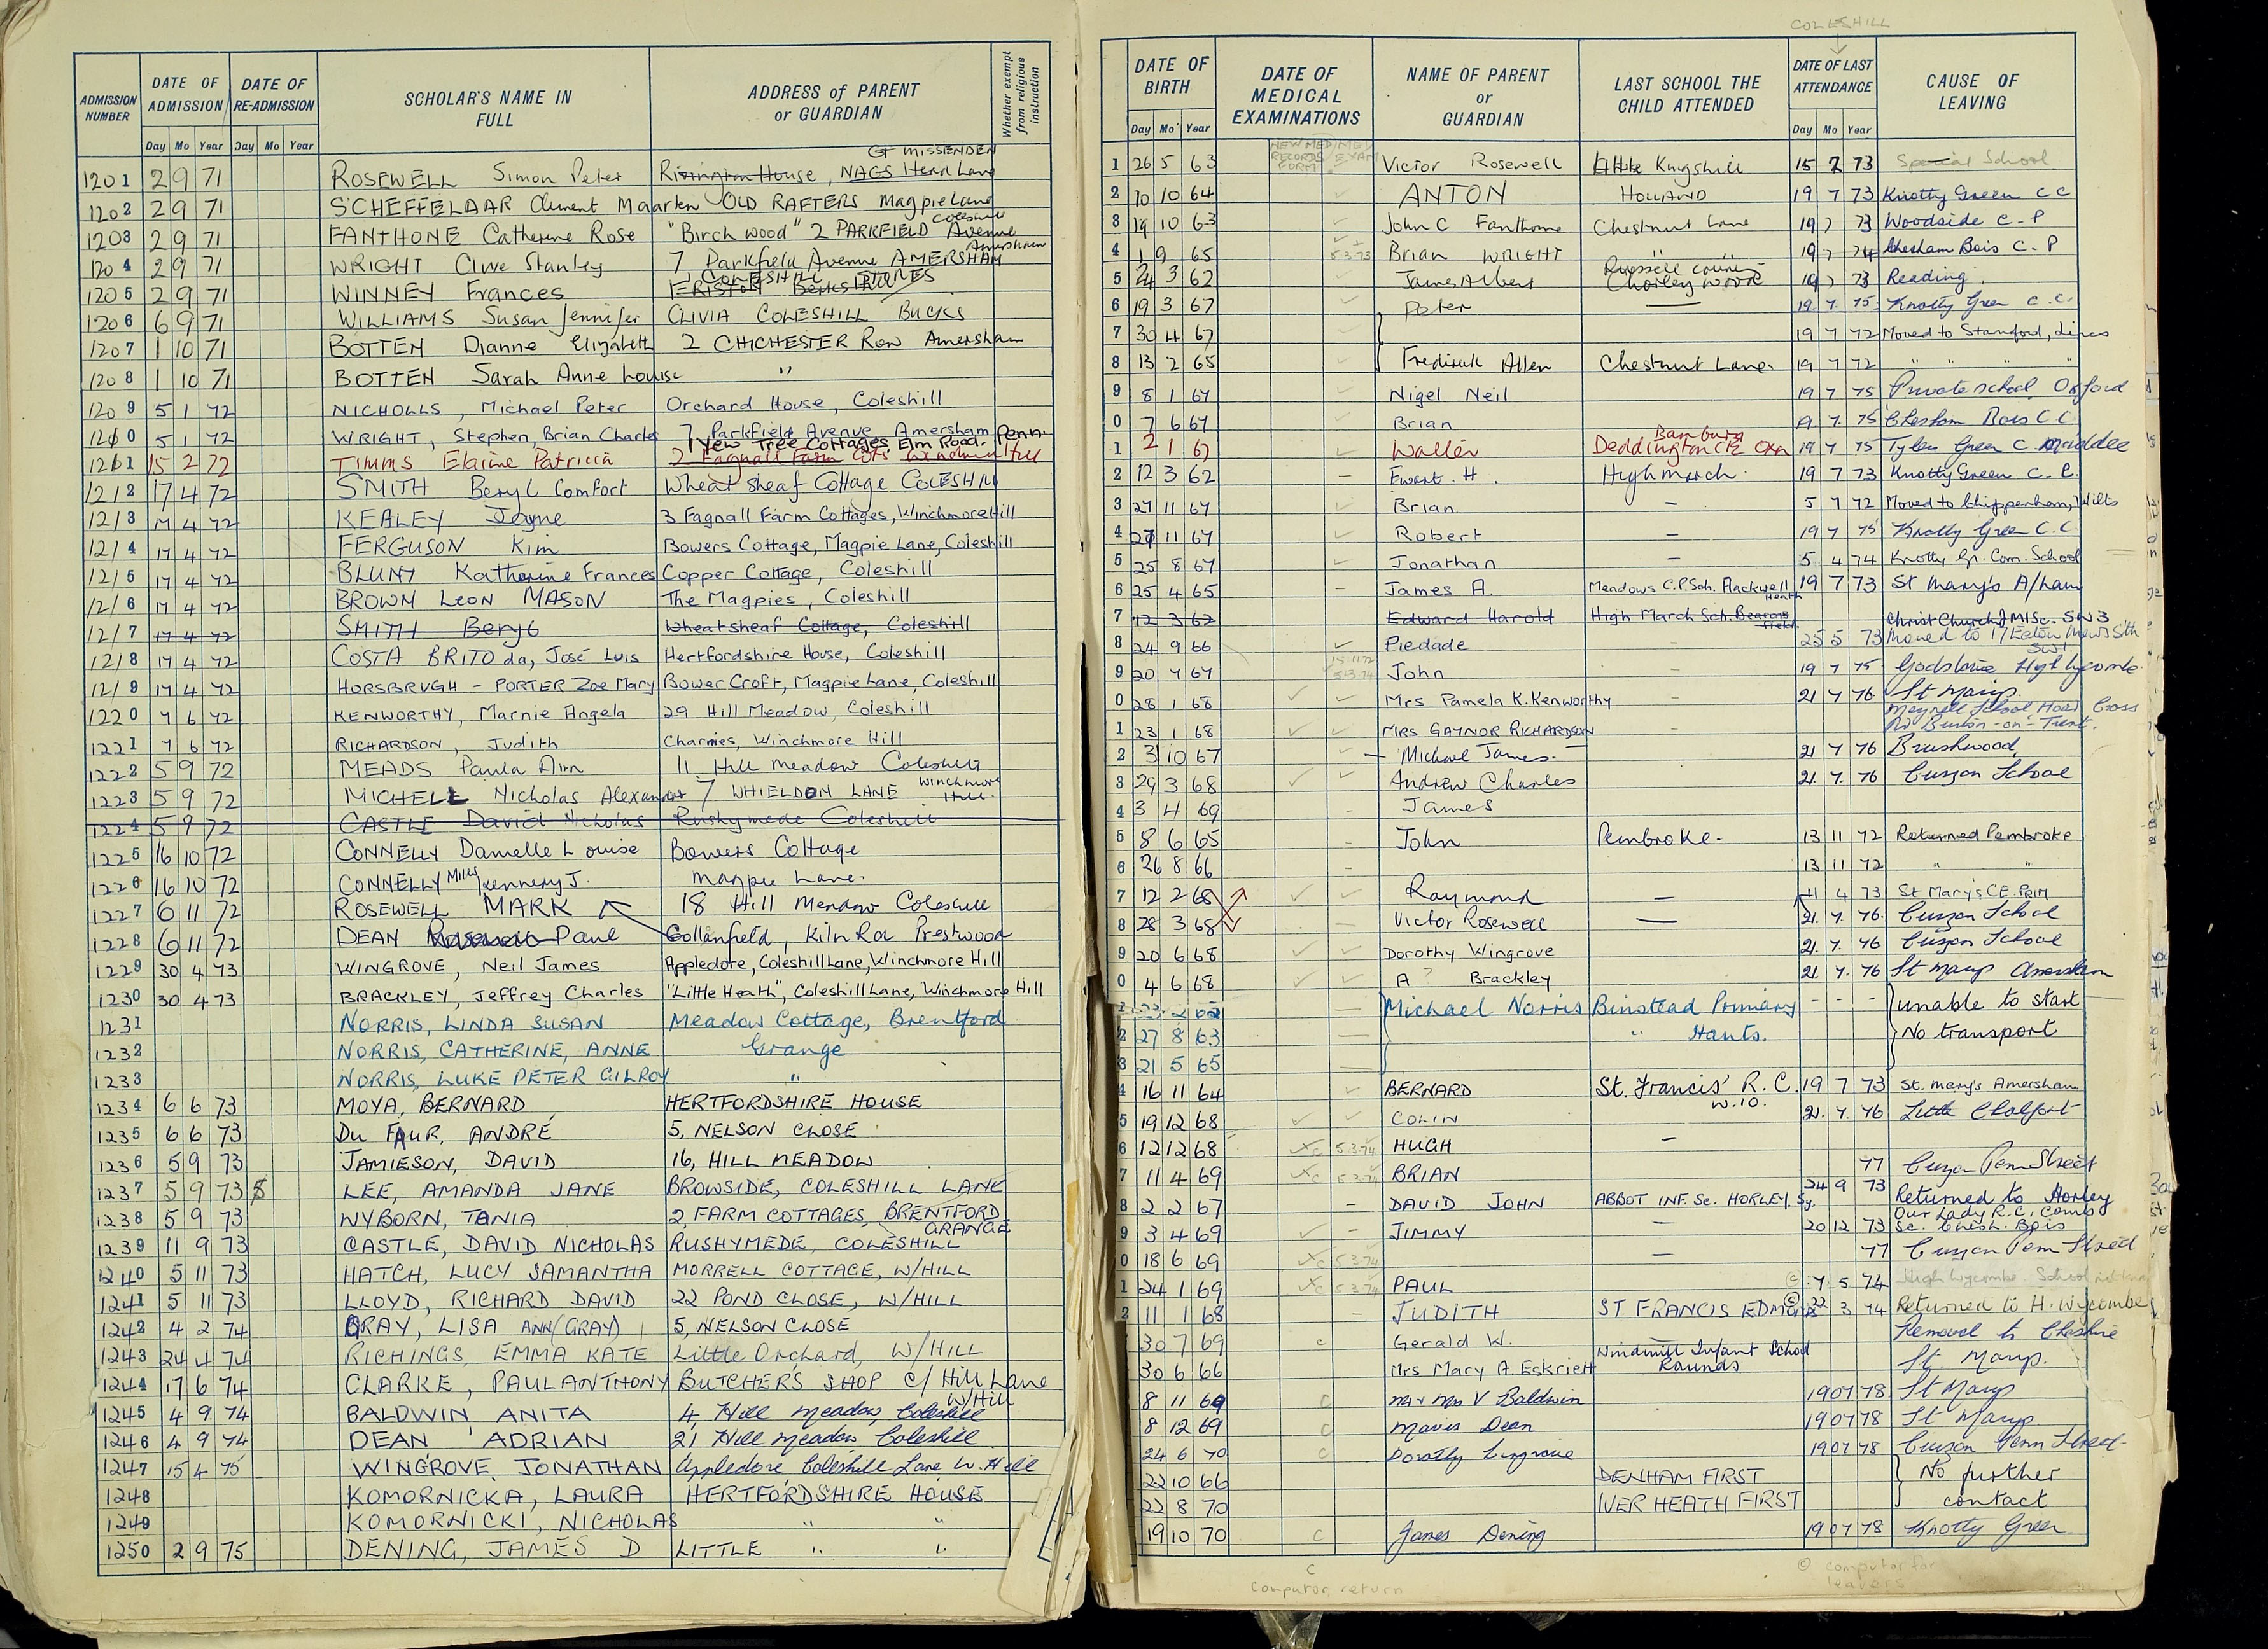 COLESHILL
ADMISSION NUMBER
DATE OF ADMISSION
DATE OF RE-ADMISSION
SCHOLAR'S NAME IN FULL
ADDRESS of PARENT or GUARDIAN
Whether exempt from religious instruction
Day Mo Year Day Mo Year
1201 2 9 71 ROSEWELL Simon Peter Rivington House, NAGS Head Lane GT MISSENDEN
1202 2 9 71 SCHEFFELAAR Clement Maarten OLD RAFTERS Magpie Lane Coleshill
1203 2 9 71 FANTHONE Catherine Rose "Birchwood" 2 PARKFIELD Avenue Amersham
1204 2 9 71 WRIGHT Clive Stanley 7 Parkfield Avenue AMERSHAM
1205 2 9 71 WINNEY Frances COLESHILL STORES
1206 6 9 71 WILLIAMS Susan Jennifer CLIVIA COLESHILL BUCKS
1207 1 10 71 BOTTEN Dianne Elizabeth 2 CHICHESTER Row Amersham
1208 1 10 71 BOTTEN Sarah Anne Louise "
1209 5 1 72 NICHOLLS, Michael Peter Orchard House, Coleshill
1210 5 1 72 WRIGHT, Stephen, Brian Charles 7 Parkfield Avenue Amersham
1 Yew Tree Cottages Elm Road. Penn.
1211 15 2 72 TIMMS Elaine Patricia 2 Fagnall Farm Cots Winchmore Hill
1212 17 4 72 SMITH Beryl Comfort Wheatsheaf Cottage COLESHILL
1213 17 4 72 KEALEY Jayne 3 Fagnall Farm Cottages, Winchmore Hill
1214 17 4 72 FERGUSON Kim Bowers Cottage, Magpie Lane, Coleshill
1215 17 4 72 BLUNT Katherine Frances Copper Cottage, Coleshill
1216 17 4 72 BROWN LEON MASON The Magpies, Coleshill
1217 17 4 72 SMITH Beryl Wheatsheaf Cottage, Coleshill
1218 17 4 72 COSTA BRITO da, José Luis Hertfordshire House, Coleshill
1219 17 4 72 HORSBRUGH - PORTER Zoe Mary Bower Croft, Magpie Lane, Coleshill
1220 7 6 72 KENWORTHY, Marnie Angela 29 Hill Meadow, Coleshill
1221 7 6 72 RICHARDSON, Judith Charnies, Winchmore Hill
1222 5 9 72 MEADS Paula Ann 11 Hill meadow Coleshill
1223 5 9 72 MICHELL Nicholas Alexander 7 WHIELDON LANE Winchmore Hill
1224 5 9 72 CASTLE David Nicholas Rushymede Coleshill
1225 16 10 72 CONNELLY Danielle Louise Bowers Cottage
1226 16 10 72 CONNELLY Miles Kennery J. Magpie Lane.
1227 6 11 72 ROSEWELL MARK 18 Hill Meadow Coleshill
1228 6 11 72 DEAN Paul Gollanfield, Kiln Rd Prestwood
1229 30 4 73 WINGROVE, Neil James Appledore, Coleshill Lane, Winchmore Hill
1230 30 4 73 BRACKLEY, Jeffrey Charles "Little Heath", Coleshill Lane, Winchmore Hill
1231 NORRIS, LINDA SUSAN Meadow Cottage, Brentford
1232 NORRIS, CATHERINE, ANNE Grange
1233 NORRIS, LUKE PETER GILROY "
1234 6 6 73 MOYA, BERNARD HERTFORDSHIRE HOUSE
1235 6 6 73 Du FAUR, ANDRÉ 5, NELSON CLOSE
1236 5 9 73 JAMIESON, DAVID 16, HILL MEADOW
1237 5 9 73 LEE, AMANDA JANE BROWSIDE, COLESHILL LANE
1238 5 9 73 WYBORN, TANIA 2, FARM COTTAGES, BRENTFORD GRANGE
1239 11 9 73 CASTLE, DAVID NICHOLAS RUSHYMEDE, COLESHILL
1240 5 11 73 HATCH, LUCY SAMANTHA MORRELL COTTAGE, W/HILL
1241 5 11 73 LLOYD, RICHARD DAVID 22 POND CLOSE, W/HILL
1242 4 2 74 BRAY, LISA ANN (GRAY) 5, NELSON CLOSE
1243 24 4 74 RICHINGS, EMMA KATE Little Orchard, W/HILL
1244 17 6 74 CLARKE, PAUL ANTHONY BUTCHER'S SHOP C/ Hill Lane W/Hill
1245 4 9 74 BALDWIN ANITA 4 Hill Meadow, Coleshill
1246 4 9 74 DEAN ADRIAN 21 Hill Meadow Coleshill
1247 15 4 75 WINGROVE, JONATHAN Appledore, Coleshill Lane W. Hill
1248 KOMORNICKA, LAURA HERTFORDSHIRE HOUSE
1249 KOMORNICKI, NICHOLAS " "
1250 2 9 75 DENING, JAMES D LITTLE " "
DATE OF BIRTH
DATE OF MEDICAL EXAMINATIONS
NAME OF PARENT or GUARDIAN
LAST SCHOOL THE CHILD ATTENDED
DATE OF LAST ATTENDANCE
CAUSE OF LEAVING
Day Mo Year Day Mo Year
NEW MED RECORDS FORM MED EXAM
1 26 5 63 Victor Rosewell Little Kingshill 15 2 73 Special School
2 10 10 64 ANTON HOLLAND 19 7 73 Knotty Green C C
3 19 10 63 John C Fanthome Chestnut Lane 19 7 73 Woodside C-P
4 1 9 65 5.3.73 Brian WRIGHT " 19 7 74 Chesham Bois C.P
5 24 3 62 James Albert Russell County Chorley Wood 19 7 73 Reading.
6 19 3 67 Peter — 19. 7. 75 Knotty Green C.C.
7 30 4 67 19 7 72 Moved to Stamford, Lincs
8 13 2 65 Frederick Allen Chestnut Lane. 19 7 72 " " " "
9 8 1 67 Nigel Neil 19 7 75 Private school Oxford
0 7 6 67 Brian 19. 7. 75 Chesham Bois C C
1 2 1 67 Walter Deddington CE Oxn Banbury 19 7 75 Tyler Green C. Middle
2 12 3 62 – Ewart. H. High March. 19 7 73 Knotty Green C. C.
3 27 11 67 Brian – 5 7 72 Moved to Chippenham, Wilts
4 27 11 67 Robert – 19 7 75 Knotty Green C.C.
5 25 8 67 Jonathan – 5 4 74 Knotty Gr. Com. School
6 25 4 65 – James A. Meadows C.P. Sch. Flackwell Heath 19 7 73 St Mary's A/ham
7 12 3 62 Edward Harold High March Sch. Beaconsfield
Christ Church J MI Sc. SW3
8 24 9 66 Piedade 25 5 73 Moved to 17 Eaton Mews Sth SW1
9 20 4 67 15.11.72 5.3.74 John – 19 7 75 Godstowe High Wycombe
0 28 1 68 Mrs Pamela K. Kenworthy – 21 7 76 St Marys.
1 23 1 68 MRS GAYNOR RICHARDSON – Meynell School Hoar Cross Nr Burton-on-Trent.
2 3 10 67 Michael James. 21 7 76 Brushwood
3 29 3 68 Andrew Charles 21. 7. 76 Curzon School
4 3 4 69 – James
5 8 6 65 – John Pembroke- 13 11 72 Returned Pembroke
6 26 8 66 – 13 11 72 " "
7 12 2 68 Raymond — 11 4 73 St Mary's C.E. PRIM
8 28 3 68 Victor Rosewell — 21. 7. 76. Curzon School
9 20 6 68 Dorothy Wingrove 21. 7. 76 Curzon School
0 4 6 68 A ? Brackley 21. 7. 76 St Marys Amersham
1 – Michael Norris Binstead Primary - - - unable to start
2 27 8 63 — " Hants. No transport
3 21 5 65 —
4 16 11 64 BERNARD St. Francis' R.C. W.10. 19 7 73 St. Mary's Amersham
5 19 12 68 COLIN 21. 7. 76 Little Chalfont
6 12 12 68 5.3.74 HUGH –
7 11 4 69 5.3.74 BRIAN 77 Curzon Penn Street
8 2 2 67 – DAVID JOHN ABBOT INF. Sc. HORLEY, Sy. 24 9 73 Returned to Horley
9 3 4 69 – JIMMY — 20 12 73 Our Lady R.C. Comb Sc. Chesh. Bois
0 18 6 69 5.3.74 — 77 Curzon Penn Street
1 24 1 69 5.3.74 PAUL © 7 5 74 High Wycombe School
2 11 1 68 – JUDITH ST FRANCIS EDMUND © 22 3 74 Returned to H. Wycombe
30 7 69 c Gerald W. Removal to Cheshire
30 6 66 Mrs Mary A Eskriett Windmill Infant School Raunds St. Marys.
8 11 69 c Mr + Mrs V Baldwin 19 07 78 St Marys
8 12 69 c Mavis Dean 19 07 78 St Marys
24 6 70 c Dorothy Wingrove 19 07 78 Curzon Penn Street
22 10 66 DENHAM FIRST No further
22 8 70 IVER HEATH FIRST contact
19 10 70 c James Dening 19 07 78 Knotty Green
c computor return
© computor for leavers